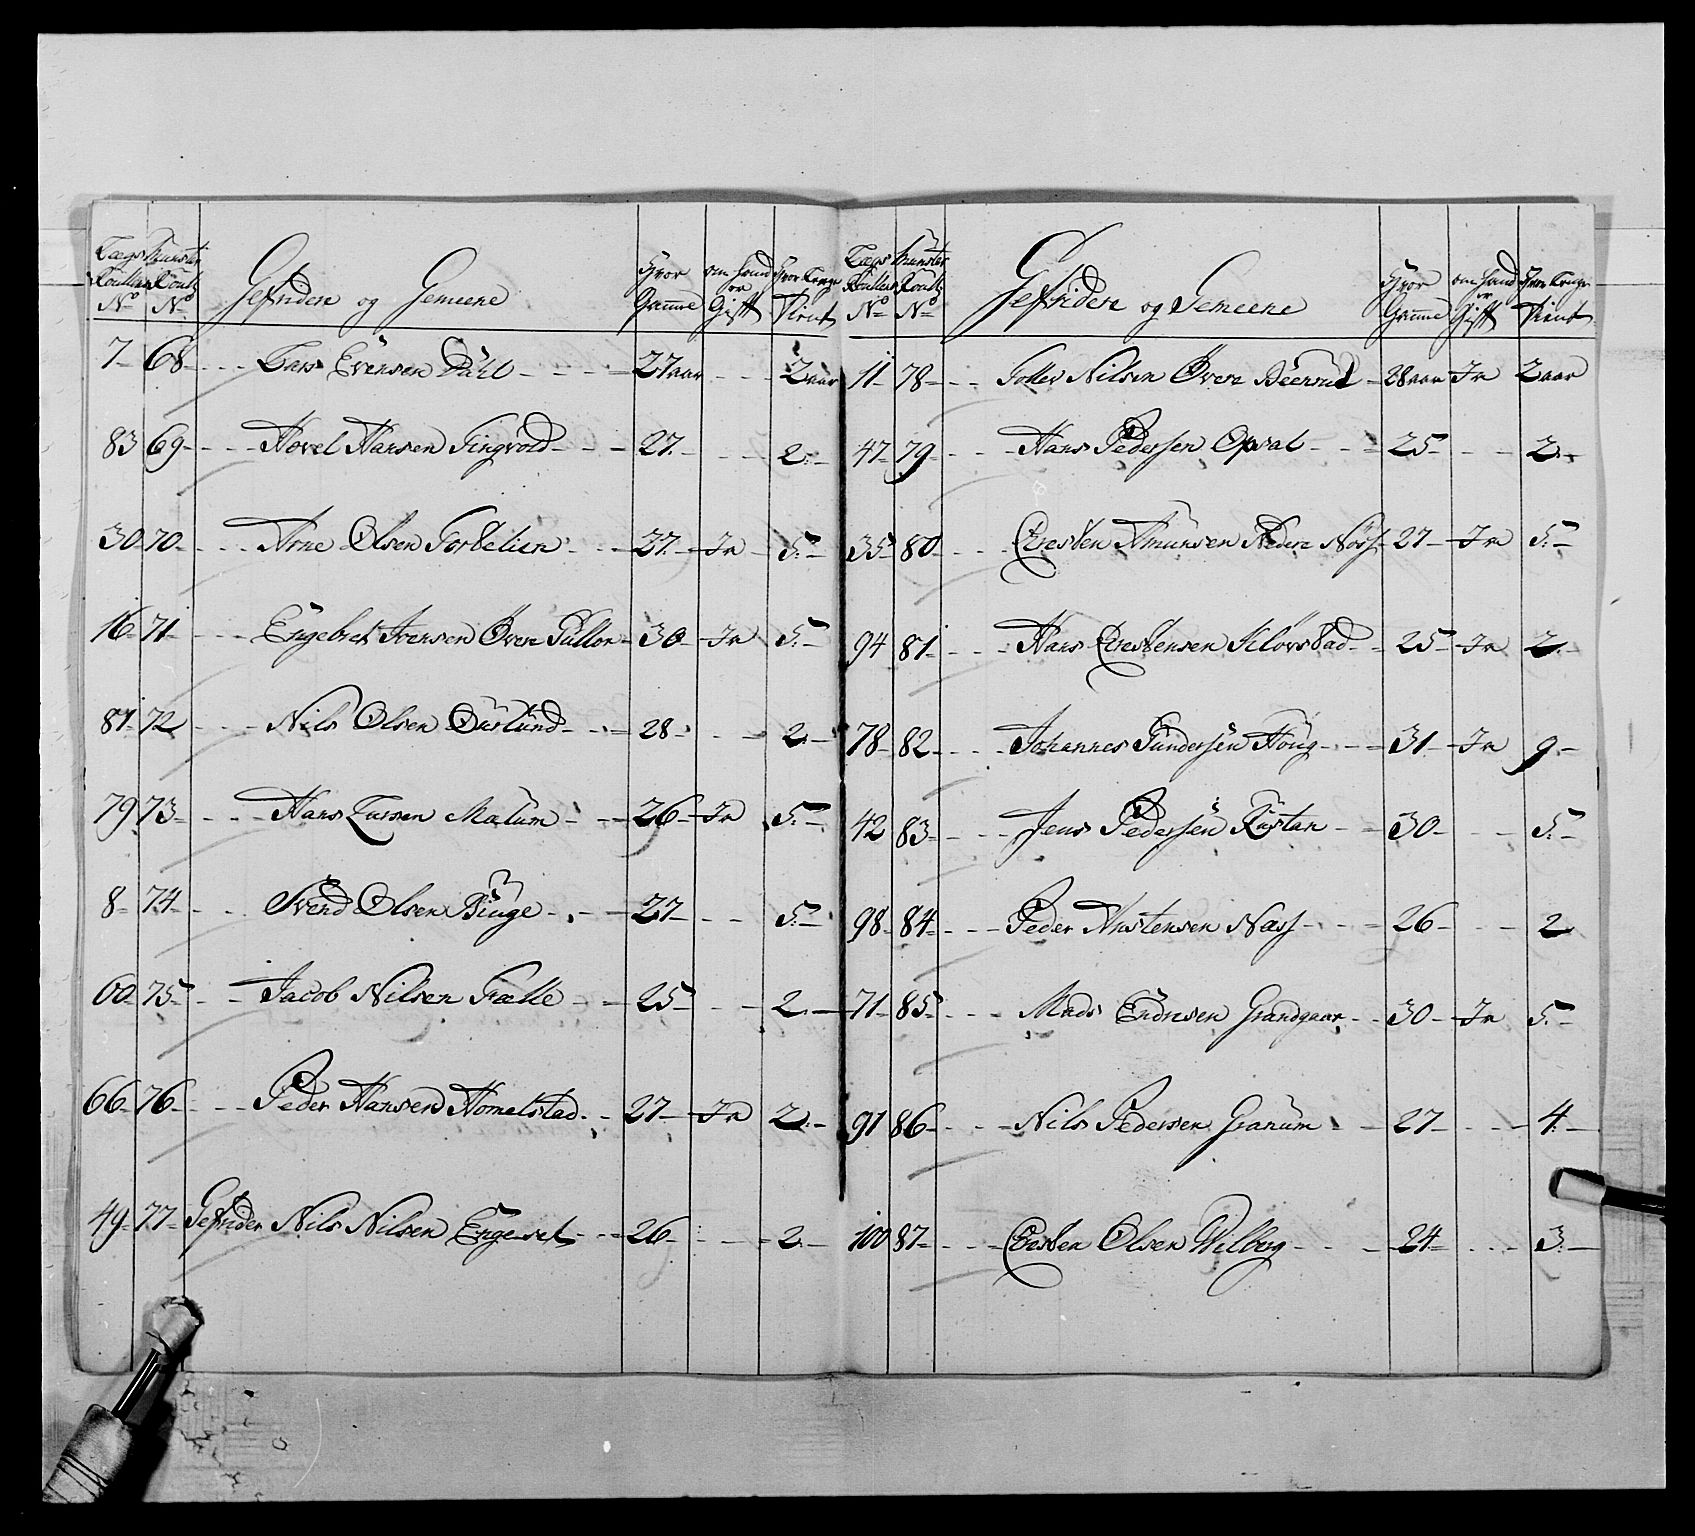 Lægs Rullens No
Munster Roulls No
Gefrider og Gemeene
Hvor Gamme
om hand er Gift
Hvor Længe Tient
7- 68- Lars Evensen Dahl 27 aar 2 aar
83 69- Hovel Hansen Tingvold 27. 2.-
30 70- Arne Olsen Torbelien 27. Ja 5.-
16 71- Engebret Ivensen Øvere 30- Ja 5.-
81- 72 Nils Olsen Ourlund 28- 2.-
79 73- Hans Larsen Malum 26- Ja 5.-
8- 74- Svend Olsen Binge 27- 5.-
60- 75- Jacob Nilsen Fælle 25- 2.-
66- 76- Peder Hansen Homelstad 27- Ja 2.-
49- 77- Gefrider Nils Nilsen Engeset 26- 2.-
Lægs Rullens No
Munster Roull No
Gefridere og Gemeene
Hvor Gamme
om hand er Gift
Hvor Længe Tient
11- 78- Nilsen Øvere 28 aar Ja 2 aar
47- 79- Hans Pedersen Opsal 25- 2.-
35- 80- Cresten Amunsen Nedere Nøss 27- Ja 5.-
94 81- Hans Crestensen Kløvstad 25- Ja 2.-
78- 82- Johannes Gundersen Houg 31- Ja 9.-
42 83- Jens Pedersen Rustan 30- 5.-
98- 84- Peder Austensen Næss 26- 2
71- 85- Mads Endresen Grandgaar 30- Ja 5.-
91 86- Nils Pedersen Granum 27- 4.-
100 87- Cresten Olsen Wilberg 24- 3.-